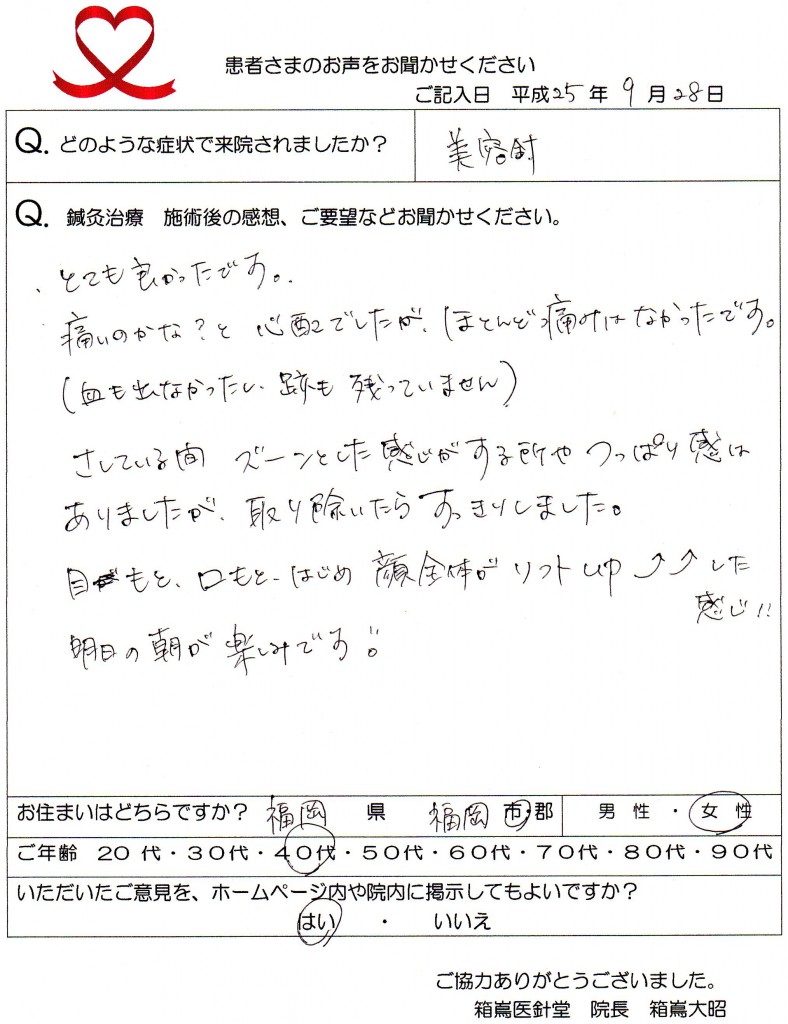 患者さまのお声をお聞かせください
ご記入日 平成25年 9月28日
Q. どのような症状で来院されましたか？ 美容針
Q. 鍼灸治療 施術後の感想、ご要望などお聞かせください。
とても良かったです。
痛いのかな？と心配でしたが、ほとんど痛みはなかったです。
（血も出なかったし、跡も残っていません）
さしている間 ズーンとした感じがする所や つっぱり感は
ありましたが、取り除いたらすっきりしました。
目もと、口もと、はじめ 顔全体が リフトup ↗↗した
感じ!!
明日の朝が楽しみです。
お住まいはどちらですか？ 福岡 県 福岡 市・郡 男性・女性
ご年齢 20代・30代・40代・50代・60代・70代・80代・90代
いただいたご意見を、ホームページ内や院内に掲示してもよいですか？
はい ・ いいえ
ご協力ありがとうございました。
箱嶌医針堂 院長 箱嶌大昭